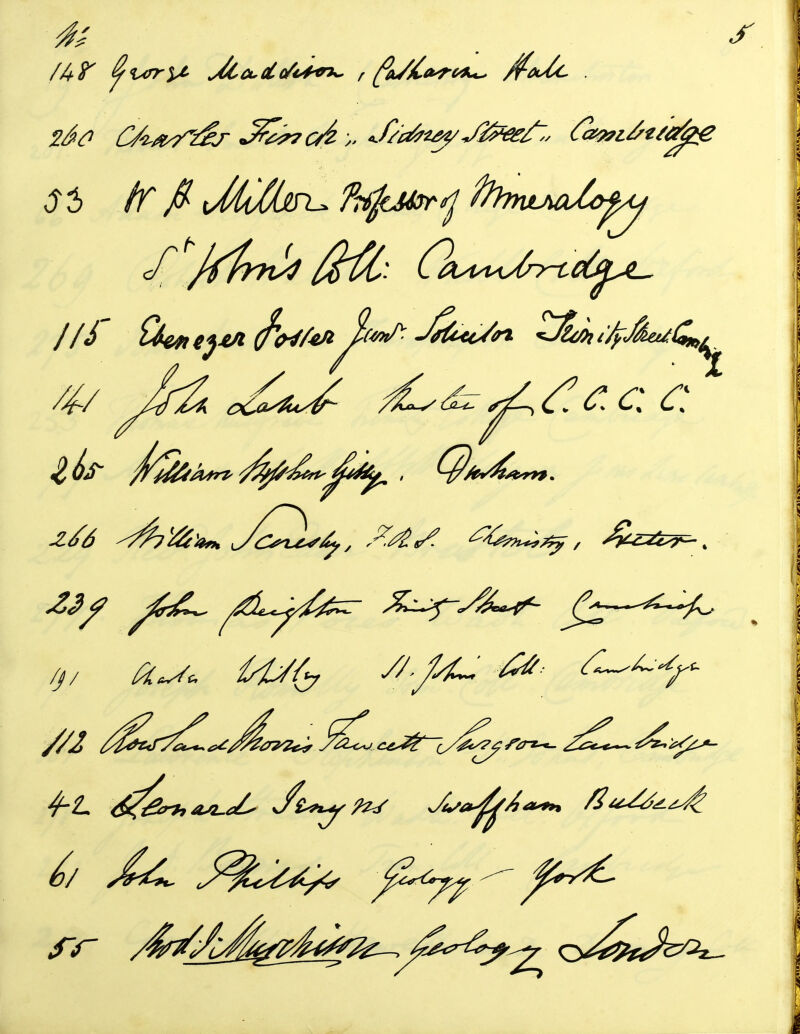 No. 5
148 George Maddison, Catharine Hall.
260 Charles Finch, Sidney Street, Cambridge
53 W H Miller Professor of Mineralogy
St John's Coll: Cambridge
115 Ebenezer Foster Junr. Solicitor Trinity Street Cambrige
141 John Lamb Master of C. C. C. C.
265 William Stephen Gilly. Durham.
266 William Scoresby, F.R.S. Chemistry, Exeter.
239 John Deighton Trinity Street Cambridge
191 Charles Whitley St. John's Coll: Cambridge
112 Rowland Morris Fawcett Surgeon Cambridge
42 Leonard Jenyns Swaffham Bulbeck
61 John Phillips Geology York
55 Rod: I: Murchison Geology London